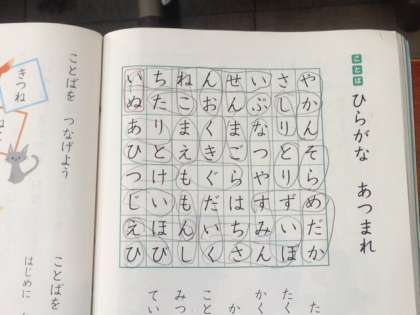 ことば
ひらがな あつまれ
やかんそらめだか
さしりとりずいぼ
いぶなつやすみん
せんまごらはちさ
んおくきぐだいく
ねこまえももんし
ちたりとけいほび
いぬあひつじえひ
た
たく
かく
か
こと
みつ
てい
ことばを つなげよう
きつね
ことばを
はじめに